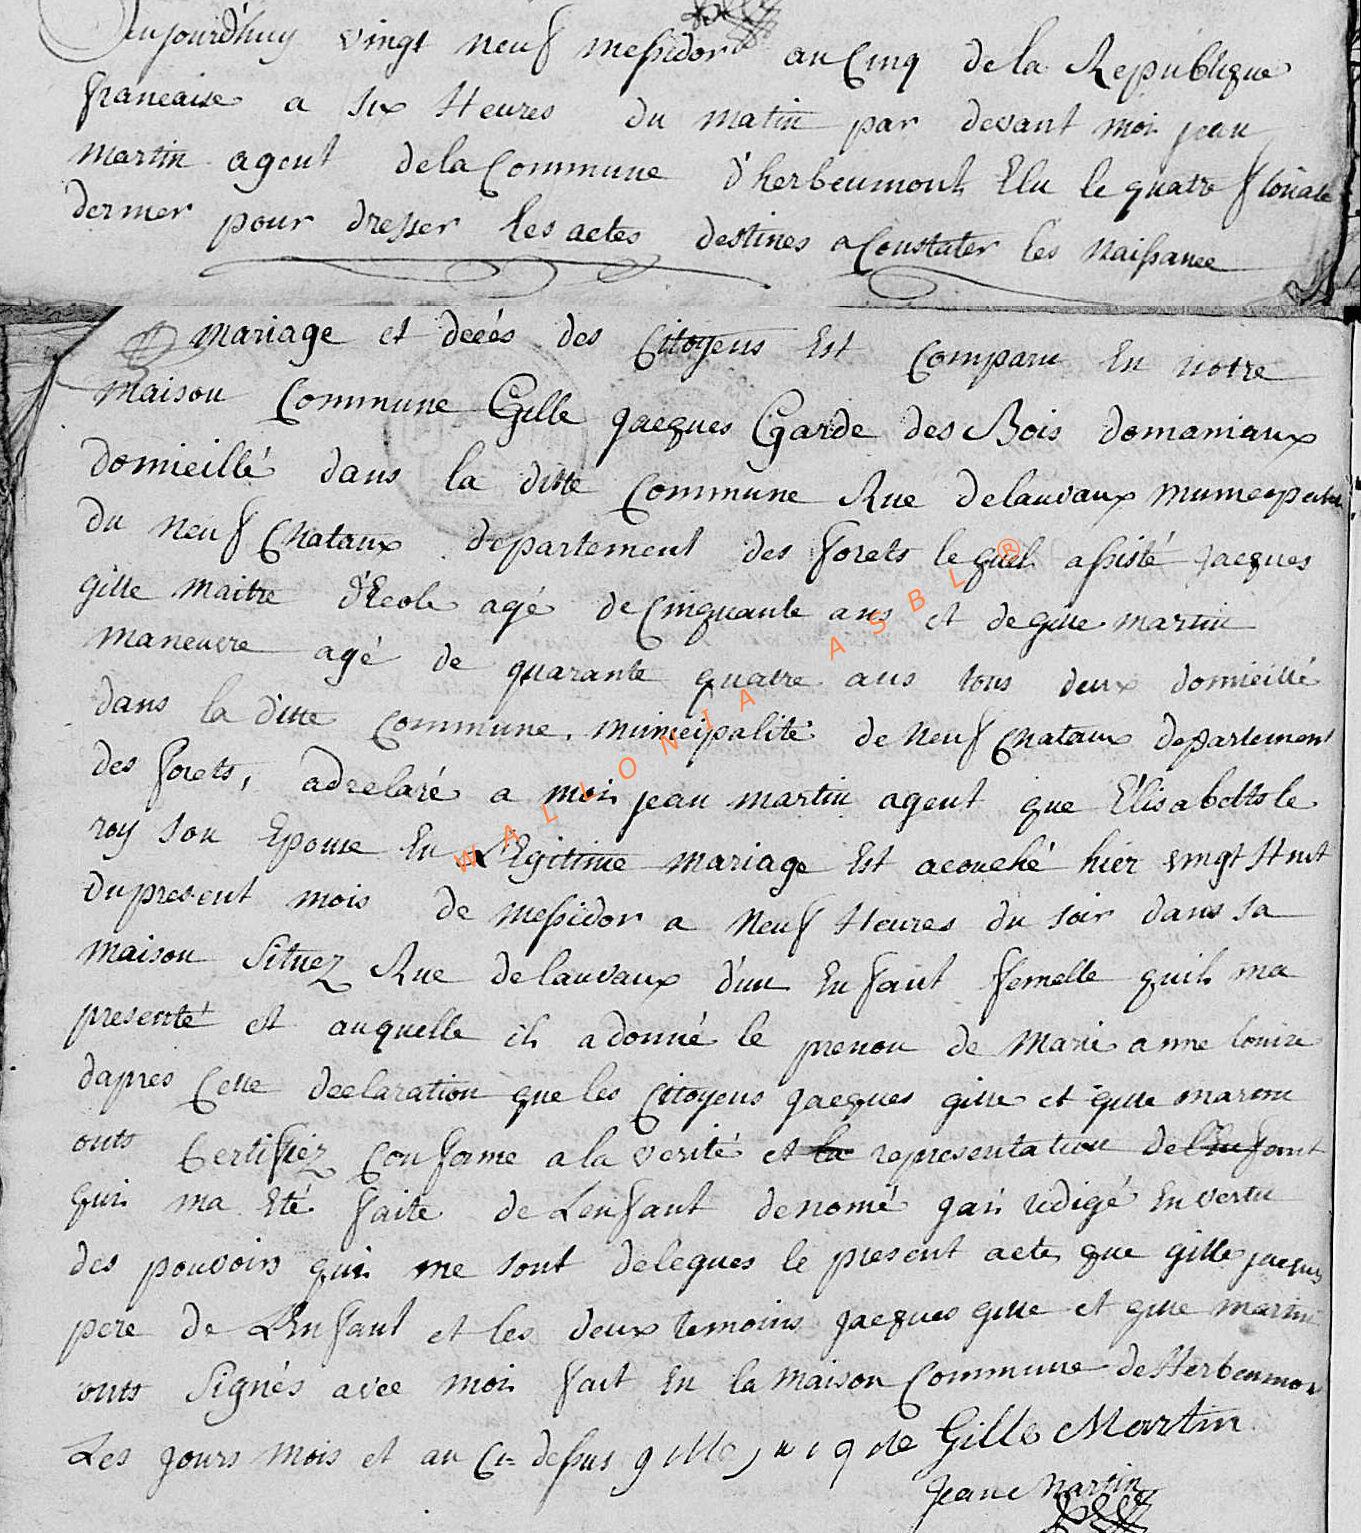 Aujourdhuy vingt neuf messidor an Cinq de la Republique
francaise a six Heures du matin par devant moi jean
martin agent dela Commune d'herbeumont Elu le quatre floreale
dernier pour dresser les actes destines a Constater les Naissance
mariage et décés des Citoyens Est Comparu En notre
maison Commune Gille jacques Garde des Bois domaniaux
domicillé dans la ditte Commune Rue delauvaux
du Neuf Chataux departement des forets lequel assisté jacques
gille maitre d'Ecole agé de Cinquante ans et de gille martin
maneuvre agé de quarante quatre ans tous deux domicillé
dans la ditte Commune. municipalité de Neuf Chataux departement
des forets, adeclaré a moi jean martin agent que Elisabette le
roy son Epouse En Légitime mariage Est acouché hier vingt Huit
du present mois de messidor a Neuf Heures du soir dans sa
maison situez Rue delauvaux d'un Enfant femelle quil ma
presenté et auquelle il adonné le prenon de Marie anne louise
dapres Cette declaration que les Citoyens jacques gille et gille martin
onts Certifiez Conforme a la verité et la representation de lEnfant
qui ma Eté faite de Lenfant denomé jai redigé En vertu
des pouvoirs qui me sont delegues le present acte que gille jacques
pere de LEnfant et les deux temoins jacques gille et gille martin
onts Signés avec moi fait En la Maison Commune de Herbeumon
Les jours mois et an Ci dessus gille Gille Martin
Jean Martin
WALLONIA ASBL ®